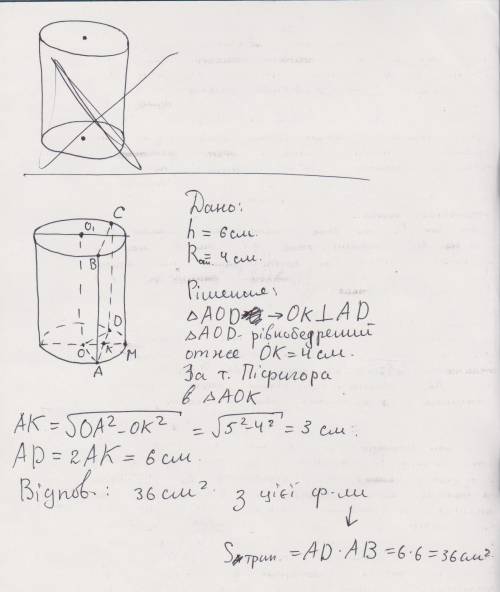 C
O₁
B
D
O K M
A
Дано:
h = 6 см.
R = 4 см.
Рішення:
△AOD → OK⊥AD
△AOD - рівнобедрений
отже OK = 4 см.
За т. Піфигора
в △AOK
AK = √OA² - OK² = √5² - 4² = 3 см.
AD = 2AK = 6 см.
Відпов.: 36 см². З цієї ф-ли
↓
S = AD · AB = 6·6 = 36 см²